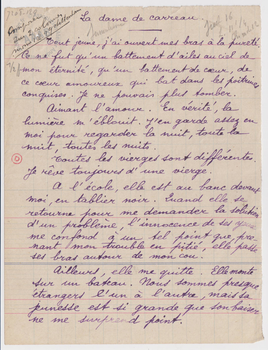 La dame de carreau
Tout jeune, j'ai ouvert mes bras à la pureté.
Ce ne fut qu'un battement d'ailes au ciel de
mon éternité, qu'un battement de cœur, de
ce cœur amoureux qui bat dans les poitrines
conquises. Je ne pouvais plus tomber.
Aimant l'amour. En vérité, la
lumière m'éblouit. J'en garde assez en
moi pour regarder la nuit, toute la
nuit, toutes les nuits.
Toutes les vierges sont différentes.
Je rêve toujours d'une vierge.
A l'école, elle est au banc devant
moi, en tablier noir. Quand elle se
retourne pour me demander la solution
d'un problème, l'innocence de ses yeux
me confond à un tel point que, pre-
nant mon trouble en pitié, elle passe
ses bras autour de mon cou.
Ailleurs, elle me quitte. Elle monte
sur un bateau. Nous sommes presque
étrangers l'un à l'autre, mais sa
jeunesse est si grande que son baiser
ne me surprend point.